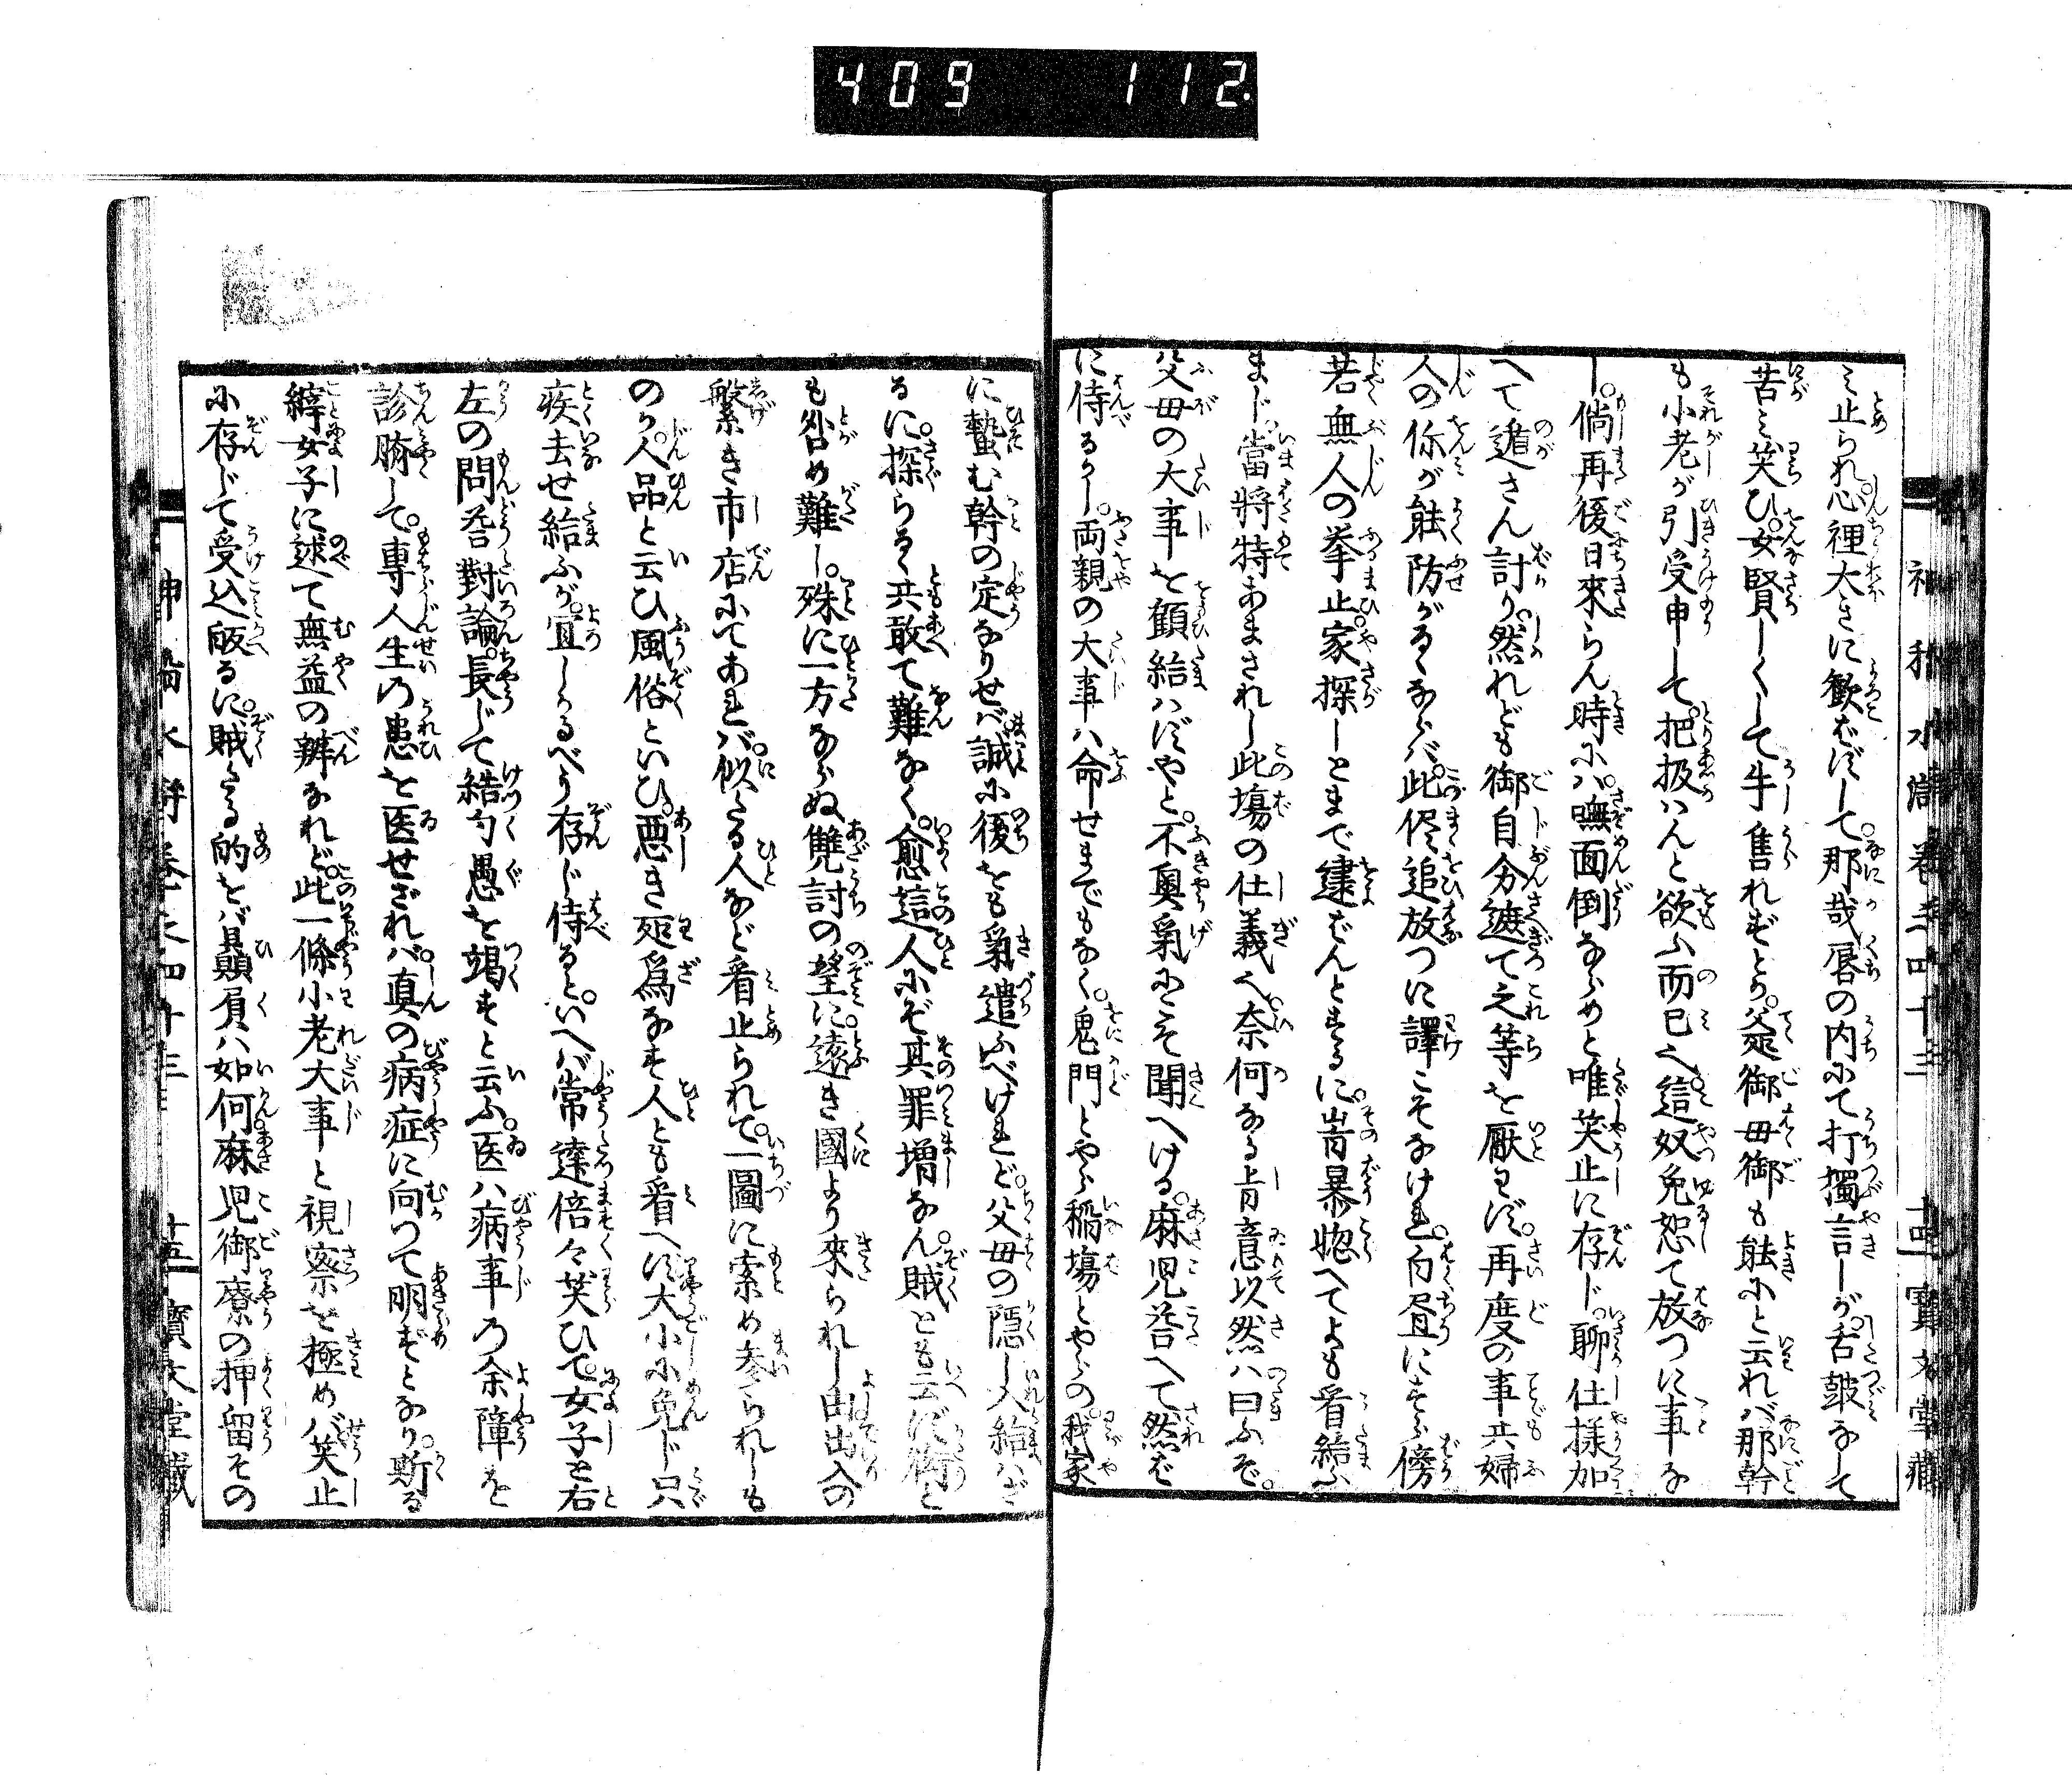 409 112
ミ止られ心裡大きに歓ばずして。那哉唇の内にて打獨言しが。舌皷なして
苦ミ笑ひ。女賢しくして牛售れずとか。爺御母御も能にと云れバ那幹
も小老が引受申して。把扱ハんと欲ふ而已。這奴免恕て放つに事な
し。倘再後日来らん時にハ。嘸面倒ならめと唯笑止に存じ。聊仕様加
へて遁さん討り。然れども御自分遮て之等を厭ハず。再度の事共婦
人の你が能防がるゝならバ。此侭追放つに譯こそなけれ。白昼にすら傍
若無人の挙止。家探しとまで逮ばんとするに。岢暴惚へてよも看給ふ
まじ。當将特あまされし此塲の仕義へ。奈何なる肯意以然ハ曰ふぞ。
父毋の大事を顧結ハずやと。不興氣にこそ聞へける。麻児荅へて然ば
に侍るかし。両親の大事ハ命せまでもなく。鬼門とやら稲塲とやらの。我家
に蟄む幹の定なりせバ。誠に後をも氣遣ふべけれど。父毋の隠し入給ハざ
るに。探らるゝ共敢て難なく。愈這人にぞ其罪増なん。賊とも云ず
も咎め難し。殊に一方ならぬ讐討の望に。遠き國より来られし出出入の
繁き市店にてあれバ。似たる人など看止られて。一圖に索め参られしも
のか。人品と云ひ風俗といひ。悪き所爲なす人とも看へず。大小に免じ只
疾去せ給ふが。宜しかるべう存じ侍ると。いへバ常達倍々笑ひて。女子と右
左の問荅對論。長じて結句愚を竭すと云ふ。医ハ病事の余障を
診脈して。専人生の患を医せざれバ。真の病症に向つて明ずとなり。断る
縡女子に述て無益の辨なれど。此一條小老大事と視察を極めバ。笑止
に存じて受込皈るに。賊たる的をバ贔屓ハ如何。麻児御寮の押留その
神稲水滸巻之四十三 十五 寳文堂藏